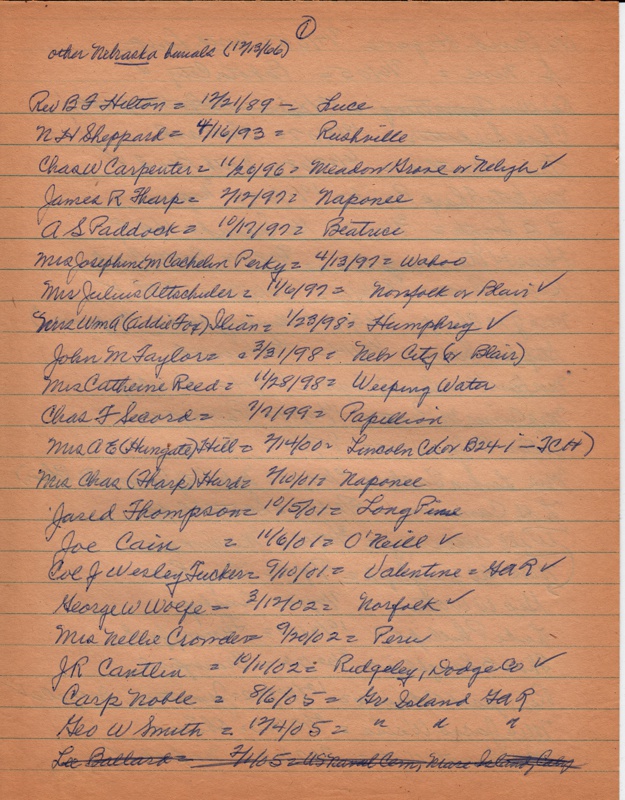 ①
other Nebraska burials (12/13/66)
Rev B F Hilton = 12/21/89 = Luce
N H Sheppard = 4/16/93 = Rushville
Chas W Carpenter = 11/26/96 = Meadow Grove or Neligh ✓
James R Tharp = 2/12/97 = Naponee
A S Paddock = 10/17/97 = Beatrice
Mrs Josephine M Cachelin Perky = 4/13/97 = Wahoo
Mrs Julius Altschuler = 11/6/97 = Norfolk or Blair ✓
Mrs Wm A (Addie Fox) Ilian = 1/23/98 = Humphrey ✓
John M Taylor = 3/31/98 = Nebr City (or Blair)
Mrs Catherine Reed = 11/28/98 = Weeping Water
Chas F Secord = 2/7/99 = Papillion
Mrs A E (Hungate) Hill = 2/14/00 = Lincoln Co (or B24-1 - JCH)
Mrs Chas (Tharp) Hurd = 2/10/01 = Naponee
Jared Thompson = 10/5/01 = Long Pine
Joe Cain = 11/6/01 = O'Neill ✓
Col J Wesley Tucker = 9/10/01 = Valentine = GAR ✓
George W Wolfe = 3/12/02 = Norfolk ✓
Mrs Nellie Crowder = 9/20/02 = Peru
J R Cantlin = 10/11/02 = Ridgeley, Dodge Co ✓
Carp Noble = 8/6/05 = Gr Island GAR
Geo W Smith = 12/4/05 = " " "
Lee Ballard = 2/1/05 = US Naval Cem, Mare Island, Caly